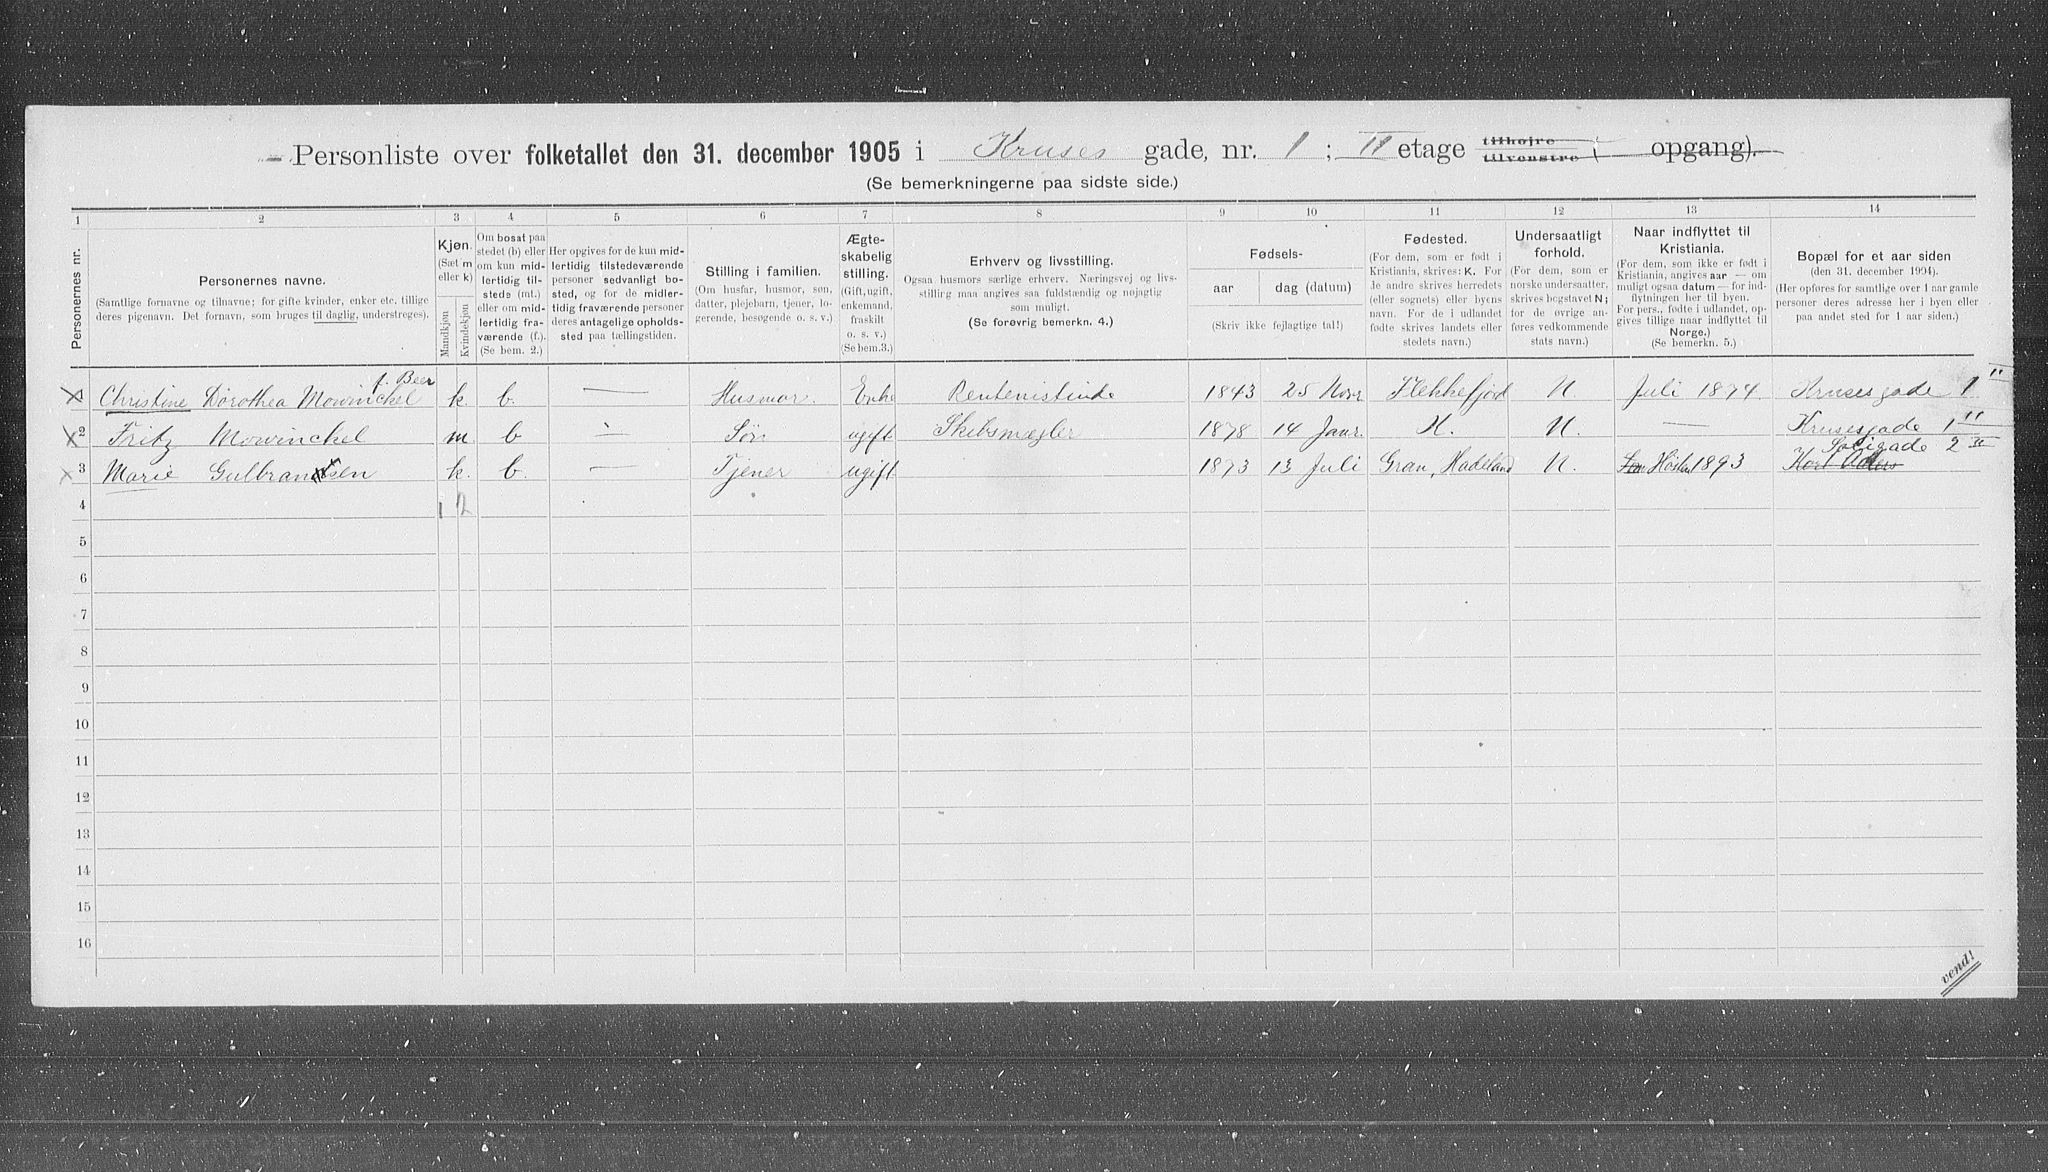 Personliste over folketallet den 31. december 1905 i Kruses gade, nr. 1 ; II etage tilhøjre tilvenstre opgang).
(Se bemerkningerne paa sidste side.)
1 2 3 4 5 6 7 8 9 10 11 12 13 14
Personernes nr.
Personernes navne.
(Samtlige fornavne og tilnavne; for gifte kvinder, enker etc. tillige
deres pigenavn. Det fornavn, som bruges til daglig, understreges).
Kjøn.
(Sæt m
eller k)
Mandkjøn
Kvindekjøn
Om bosat paa
stedet (b) eller
om kun mid-
lertidig til-
stede (mt.)
eller om mid-
lertidig fra-
værende (f.).
(Se bem. 2.)
Her opgives for de kun mid-
lertidig tilstedeværende
personer sedvanligt bo-
sted, og for de midler-
tidig fraværende personer
deres antagelige opholds-
sted paa tællingstiden.
Stilling i familien.
(Om husfar, husmor, søn,
datter, plejebarn, tjener, lo-
gerende, besøgende o. s. v.)
Ægte-
skabelig
stilling.
(Gift, ugift,
enkemand,
fraskilt
o. s. v.)
(Se bem.3.)
Erhverv og livsstilling.
Ogsaa husmors særlige erhverv. Næringsvej og livs-
stilling maa angives saa fuldstændig og nøjagtig
som muligt.
(Se forøvrig bemerkn. 4.)
Fødsels-
aar dag (datum)
(Skriv ikke fejlagtige tal!)
Fødested.
(For dem, som er født i
Kristiania, skrives: K. For
de andre skrives herredets
(eller sognets) eller byens
navn. For de i udlandet
fødte skrives landets eller
stedets navn.)
Undersaatligt
forhold.
(For dem, som er
norske undersaatter,
skrives bogstavet N;
for de øvrige an-
føres vedkommende
stats navn.)
Naar indflyttet til
Kristiania.
(For dem, som ikke er født i
Kristiania, angives aar — om
muligt ogsaa datum — for ind-
flytningen her til byen.
For pers., fødte i udlandet, op-
gives tillige naar indflyttet til
Norge.)
(Se bemerkn. 5.)
Bopæl for et aar siden
(den 31. december 1904).
(Her opføres for samtlige over 1 aar gamle
personer deres adresse her i byen eller
paa andet sted for 1 aar siden.)
f. Beer
1 Christine Dorothea Mowinckel k. b. — Husmor. Enke Rentenistinde 1843 25 Novr Flekkefjord N. Juli 1874 Krusesgade 1 II
2 Fritz Mowinckel m. b — Søn ugift Skibsmægler 1878 14 Janr. K. N. — Krusesgade 1 II
3 Marie Gulbrandsen k. b. — Tjener ugift 1873 13 Juli Gran, Hadeland N. Høsten 1893 Kort Adlers Sofigade 2 II
4 1 2
5
6
7
8
9
10
11
12
13
14
15
16
vend!